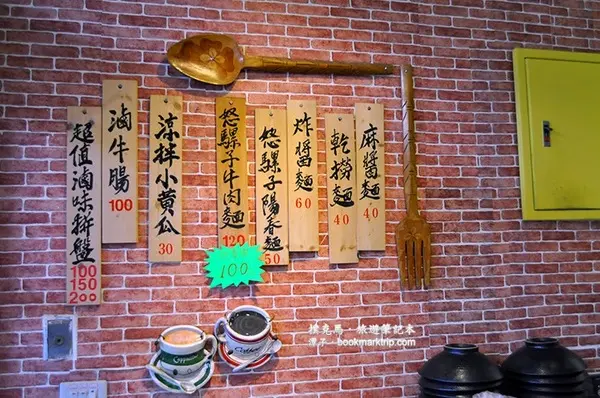 麻醬麵 40
乾撈麵 40
炸醬麵 60
怒騾子陽春麵 50
怒騾子牛肉麵 120
100
涼拌小黃瓜 30
滷牛腸 100
超值滷味拼盤 100 150 200
Cappuccino
Coffee
撲克馬·旅遊筆記本
潭子—bookmarktrip.com